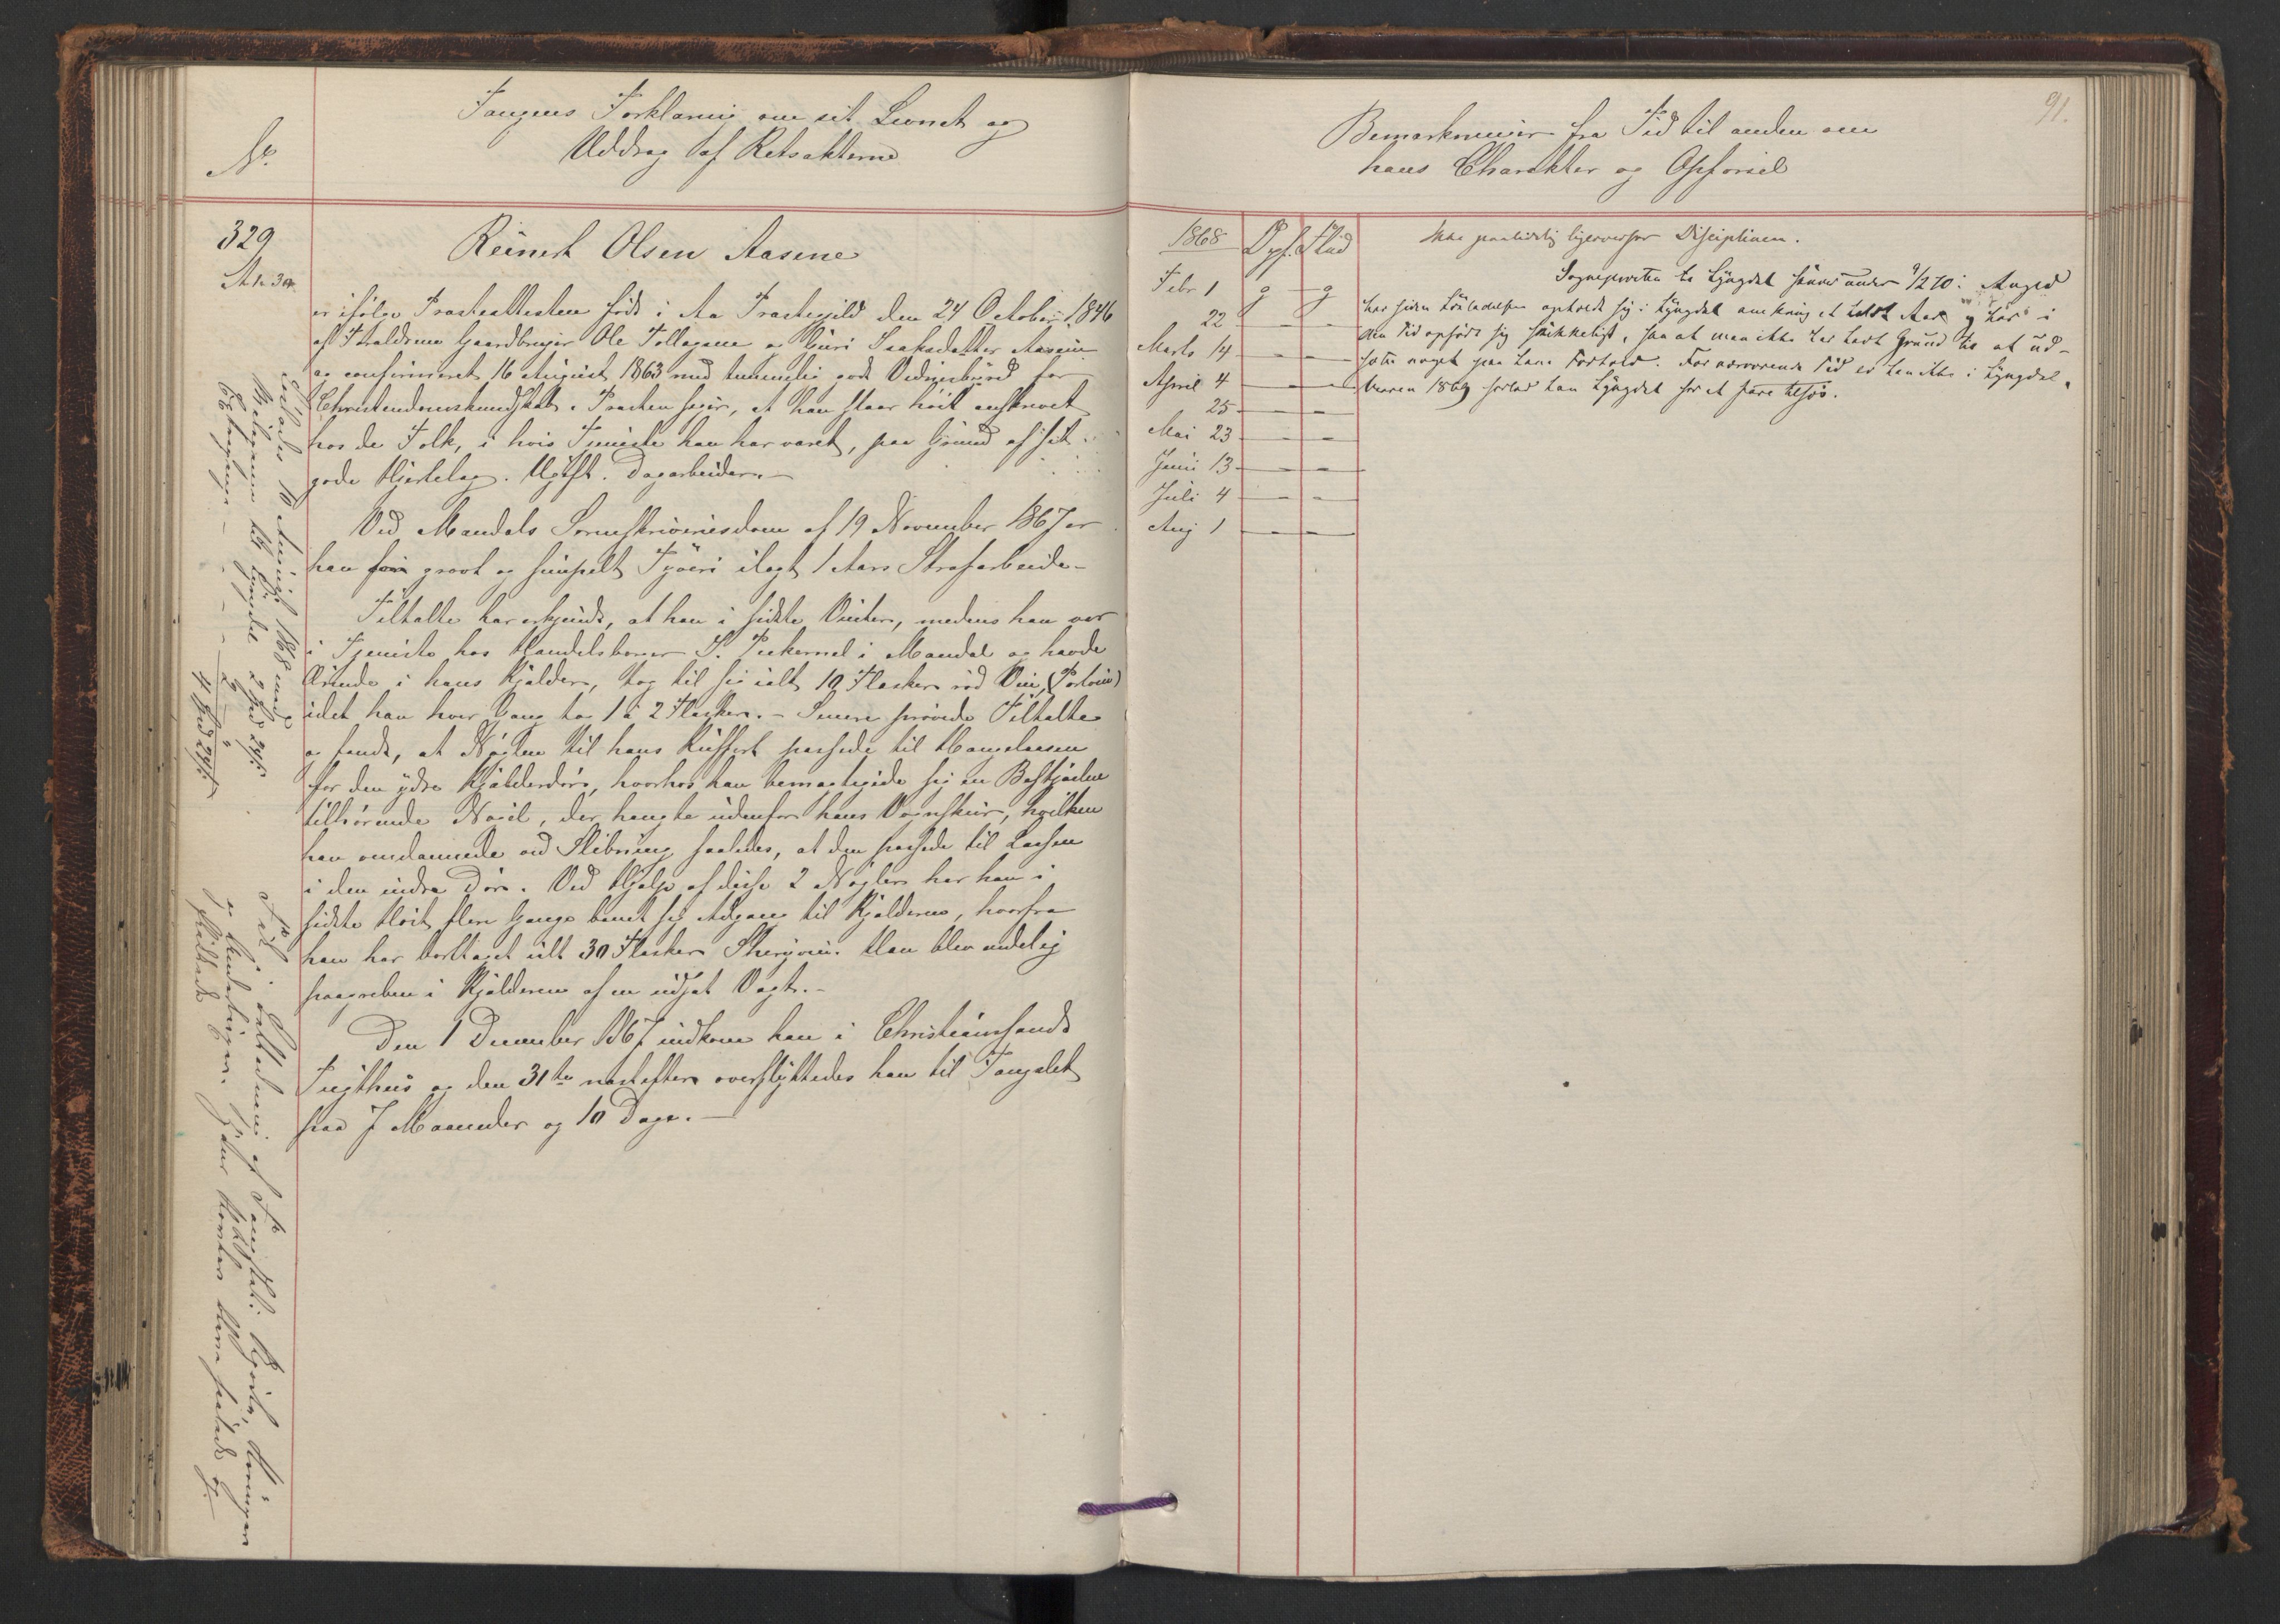 Fangens Forklaring om sit Levnet og
Uddrag af Retsakterne
No
329
Reinert Olsen Aasene
er ifølge Præsteattesten født i Aa Præstegjeld den 24 October 1846
af Forældrene Gaardbruger Ole Tollagsen og Guri Isaksdatter Aasene
og confirmeret 16 August 1863 med temmelig god Vidnesbyrd for
Christendomskundskab. Præsten siger, at han staar höit anskrevet
hos de Folk, i hvis Tjeneste han har været, paa Grund af sit
gode Hjertelag. Ugift. Dagarbeider.
Ved Mandals Sorenskriveriesdom af 19 November 1867 er
han for grovt og simpelt Tyveri ilagt 1 Aars Strafarbeide
Tiltalte har erkjendt, at han i sidste Vinter, medens han var
i Tjeneste hos Handelsborger i Mandal og havde
Ærinde i hans Kjelder, tog til sig ialt 10 Flasker rød Vin (Portvin)
idet han hver Gang tog 1 à 2 Flasker. – Senere prøvede Tiltalte
og fandt, at Nøglen til hans Kuffert passede til Hængelaasen
for den ydre Kjælderdør, hvorhos han bemægtigede sig en
tilhørende Nøgel, der hængte udenfor hans Vognskur, hvilken
han omdannede ved Slibning saaledes, at den passede til Laasen
i den indre Dør. Ved Hjelp af disse 2 Nøgler har han i
sidste Høst flere Gange banet sig Adgang til Kjælderen, hvorfra
han har borttaget ialt 30 Flasker Sherryvin. Han blev endelig
paagreben i Kjælderen af en udsat Vagt. –
Den 1 December 1867 indkom han i Christianssands
Tugthus og den 31te næstefter overflyttedes han til Fangslet
paa 7 Maaneder og 10 Dage. –
Løslades 10 August 1868 med
Reisepenge til Lyngdal 2 Spd 24 ß
4 Spd 24 ß
91.
Bemærkninger fra Tid til anden om
hans Charakter og Opførsel
1868 Opf. Flid
Febr 1 g g
22 – –
Marts 14 – –
April 4 – –
25 – –
Mai 23 – –
Juni 13 – –
Juli 4 – –
Aug 1 – –
Ikke paalidelig ligeoverfor Disciplinen.
Sognepresten til Lyngdal skriver under 9/2 70: Angjd
har siden Løsladelsen opholdt sig i Lyngdal omkring et halvt Aar og har i
den Tid opført sig skikkeligt, saa at man ikke har havt Grund til at ud-
sætte noget paa hans Forhold. For nærværende Tid er han ikke i Lyngdal.
Vaaren 1869 forlod han Lyngdal for at fare tilsjøs.